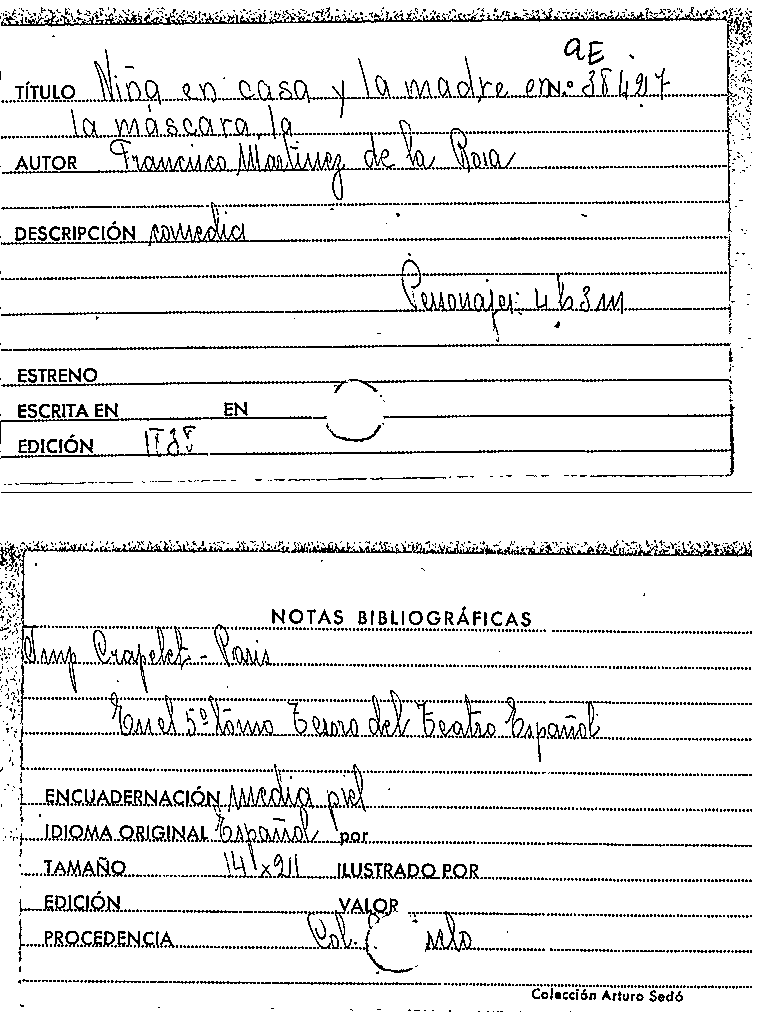 aE
TÍTULO Niña en casa y la madre en N.º 38497
la máscara, la
AUTOR Francisco Martinez de la Rosa
DESCRIPCIÓN comedia
Personajes: 4 h 3 m
ESTRENO
ESCRITA EN EN
EDICIÓN
NOTAS BIBLIOGRÁFICAS
Imp Crapelet - Paris
En el 5º tomo Tesoro del Teatro Español
ENCUADERNACIÓN media piel
IDIOMA ORIGINAL Español por
TAMAÑO ILUSTRADO POR
EDICIÓN VALOR
PROCEDENCIA Col.
Colección Arturo Sedó